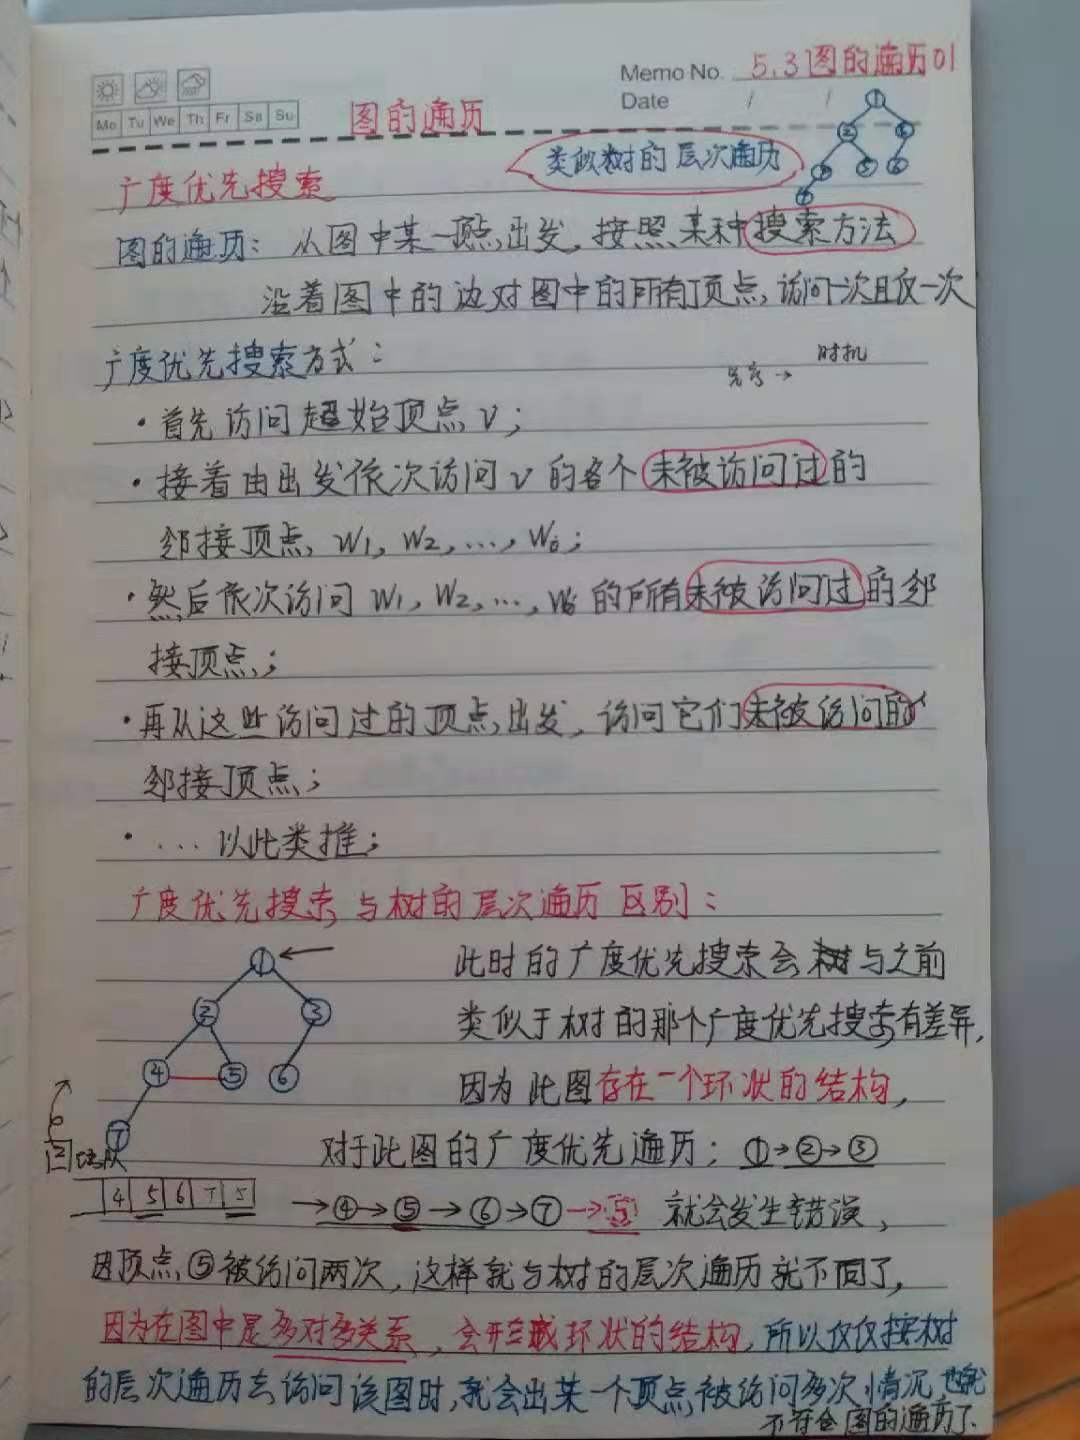 Memo No. 5.3图的遍历01
Date / /
Mo Tu We Th Fr Sa Su
图的遍历
1
2
3
4 5 6
7
类似树的层次遍历
广度优先搜索
图的遍历：从图中某一顶点出发，按照某种搜索方法
沿着图中的边对图中的所有顶点，访问一次且仅一次
广度优先搜索方式：
时机
先序→
·首先访问起始顶点V；
·接着由出发依次访问V的各个未被访问过的
邻接顶点，W1，W2，...，Wi；
·然后依次访问W1，W2，...，Wi的所有未被访问过的邻
接顶点；
·再从这些访问过的顶点出发，访问它们未被访问的
邻接顶点；
·...以此类推；
广度优先搜索与树的层次遍历区别：
① ←
② ③
④ ⑤ ⑥
⑦
此时的广度优先搜索会与之前
类似于树的那个广度优先搜索有差异，
因为此图存在一个环状的结构，
对于此图的广度优先遍历：①→②→③
2
4 5 6 7 5
→④→⑤→⑥→⑦→5 就会发生错误，
因顶点⑤被访问两次，这样就与树的层次遍历就不同了，
因为在图中是多对多关系，会形成环状的结构，所以仅仅按树
的层次遍历去访问该图时，就会出某一个顶点被访问多次情况，也就
不符合图的遍历了、